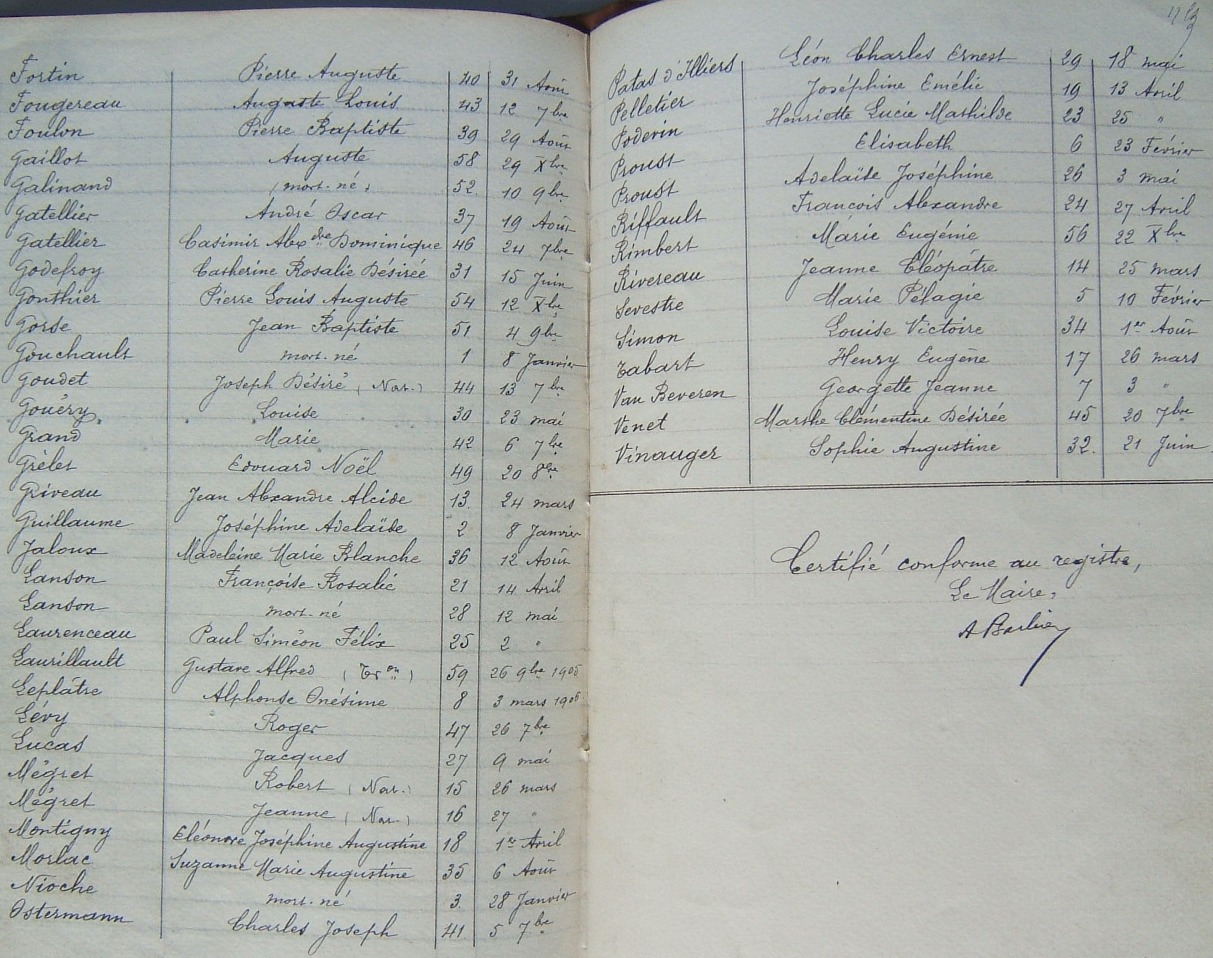 Fortin Pierre Auguste 40. 31 Août
Fougereau Auguste Louis 43 12 7bre
Foulon Pierre Baptiste 39 29 Août
Gaillot Auguste 58 29 Xbre
Galinand (mort-né) 52. 10 9bre
Gatellier André Oscar 37 19 Août
Gatellier Casimir Alexdre Dominique 46 24 7bre
Godefroy Catherine Rosalie Désirée 31 15 Juin
Gonthier Pierre Louis Auguste 54 12 Xbre
Gorse Jean Baptiste 51 4 9bre
Gouchault mort-né 1 8 Janvier
Goudet Joseph Désiré (Nar.) 44 13 7bre
Gouéry Louise 30 23 mai
Grand Marie 42 6 7bre
Grélet Edouard Noël 49 20 8bre
Griveau Jean Alexandre Alcide 13. 24 mars
Guillaume Joséphine Adelaïde 2 8 Janvier
Jaloux Madeleine Marie Blanche 36 12 Août
Lanson Françoise Rosalie 21 14 Avril
Lanson mort-né 28 12 mai
Laurenceau Paul Siméon Félix 25 2 "
Laurillault Gustave Alfred (Tron) 59 26 9bre 1905
Leplâtre Alphonse Onésime 8 3 mars 1906
Lévy Roger 47 26 7bre
Lucas Jacques 27 9 mai
Mégret Robert (Nar.) 15 26 mars
Mégret Jeanne (Nar.) 16 27 "
Montigny Eléonore Joséphine Augustine 18 1er Avril
Morlac Suzanne Marie Augustine 35 6 Août
Nioche mort-né 3. 28 Janvier
Ostermann Charles Joseph 41 5 7bre
Patas d'Illiers Léon Charles Ernest 29 18 mai
Pelletier Joséphine Emélie 19 13 Avril
Poderin Henriette Lucie Mathilde 23 25 "
Proust Elisabeth 6 23 Février
Proust Adelaïde Joséphine 26 3 mai
Riffault François Alexandre 24 27 Avril
Rimbert Marie Eugénie 56 22 Xbre
Rivereau Jeanne Cléopâtre 14 25 mars
Sevestre Marie Pélagie 5 10 Février
Simon Louise Victoire 34 1er Août
Tabart Henry Eugène 17 26 mars
Van Beveren Georgette Jeanne 7 3 "
Venet Marthe Clémentine Désirée 45 20 7bre
Vinauger Sophie Augustine 32. 21 Juin
Certifié conforme au registre,
Le Maire,
A Barbier